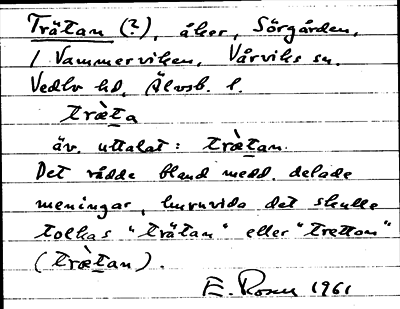 Trätan (?), åker, Sörgården,
/ Vammerviken, Vårviks sn.
Vedbo hd, Älvsb. l.
træ̀ta
äv. uttalat: træ̀tan.
Det rådde bland medd. delade
meningar, huruvida det skulle
tolkas "trätan" eller "tretton"
(træ̀tan).
E. Rosén 1961